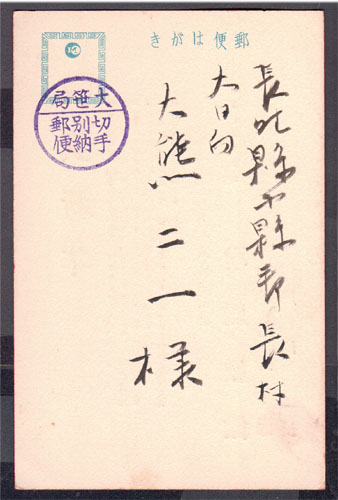 郵便はがき
長野縣小縣郡長村
大日向
大熊二一様
大笹局
切手
別納
郵便